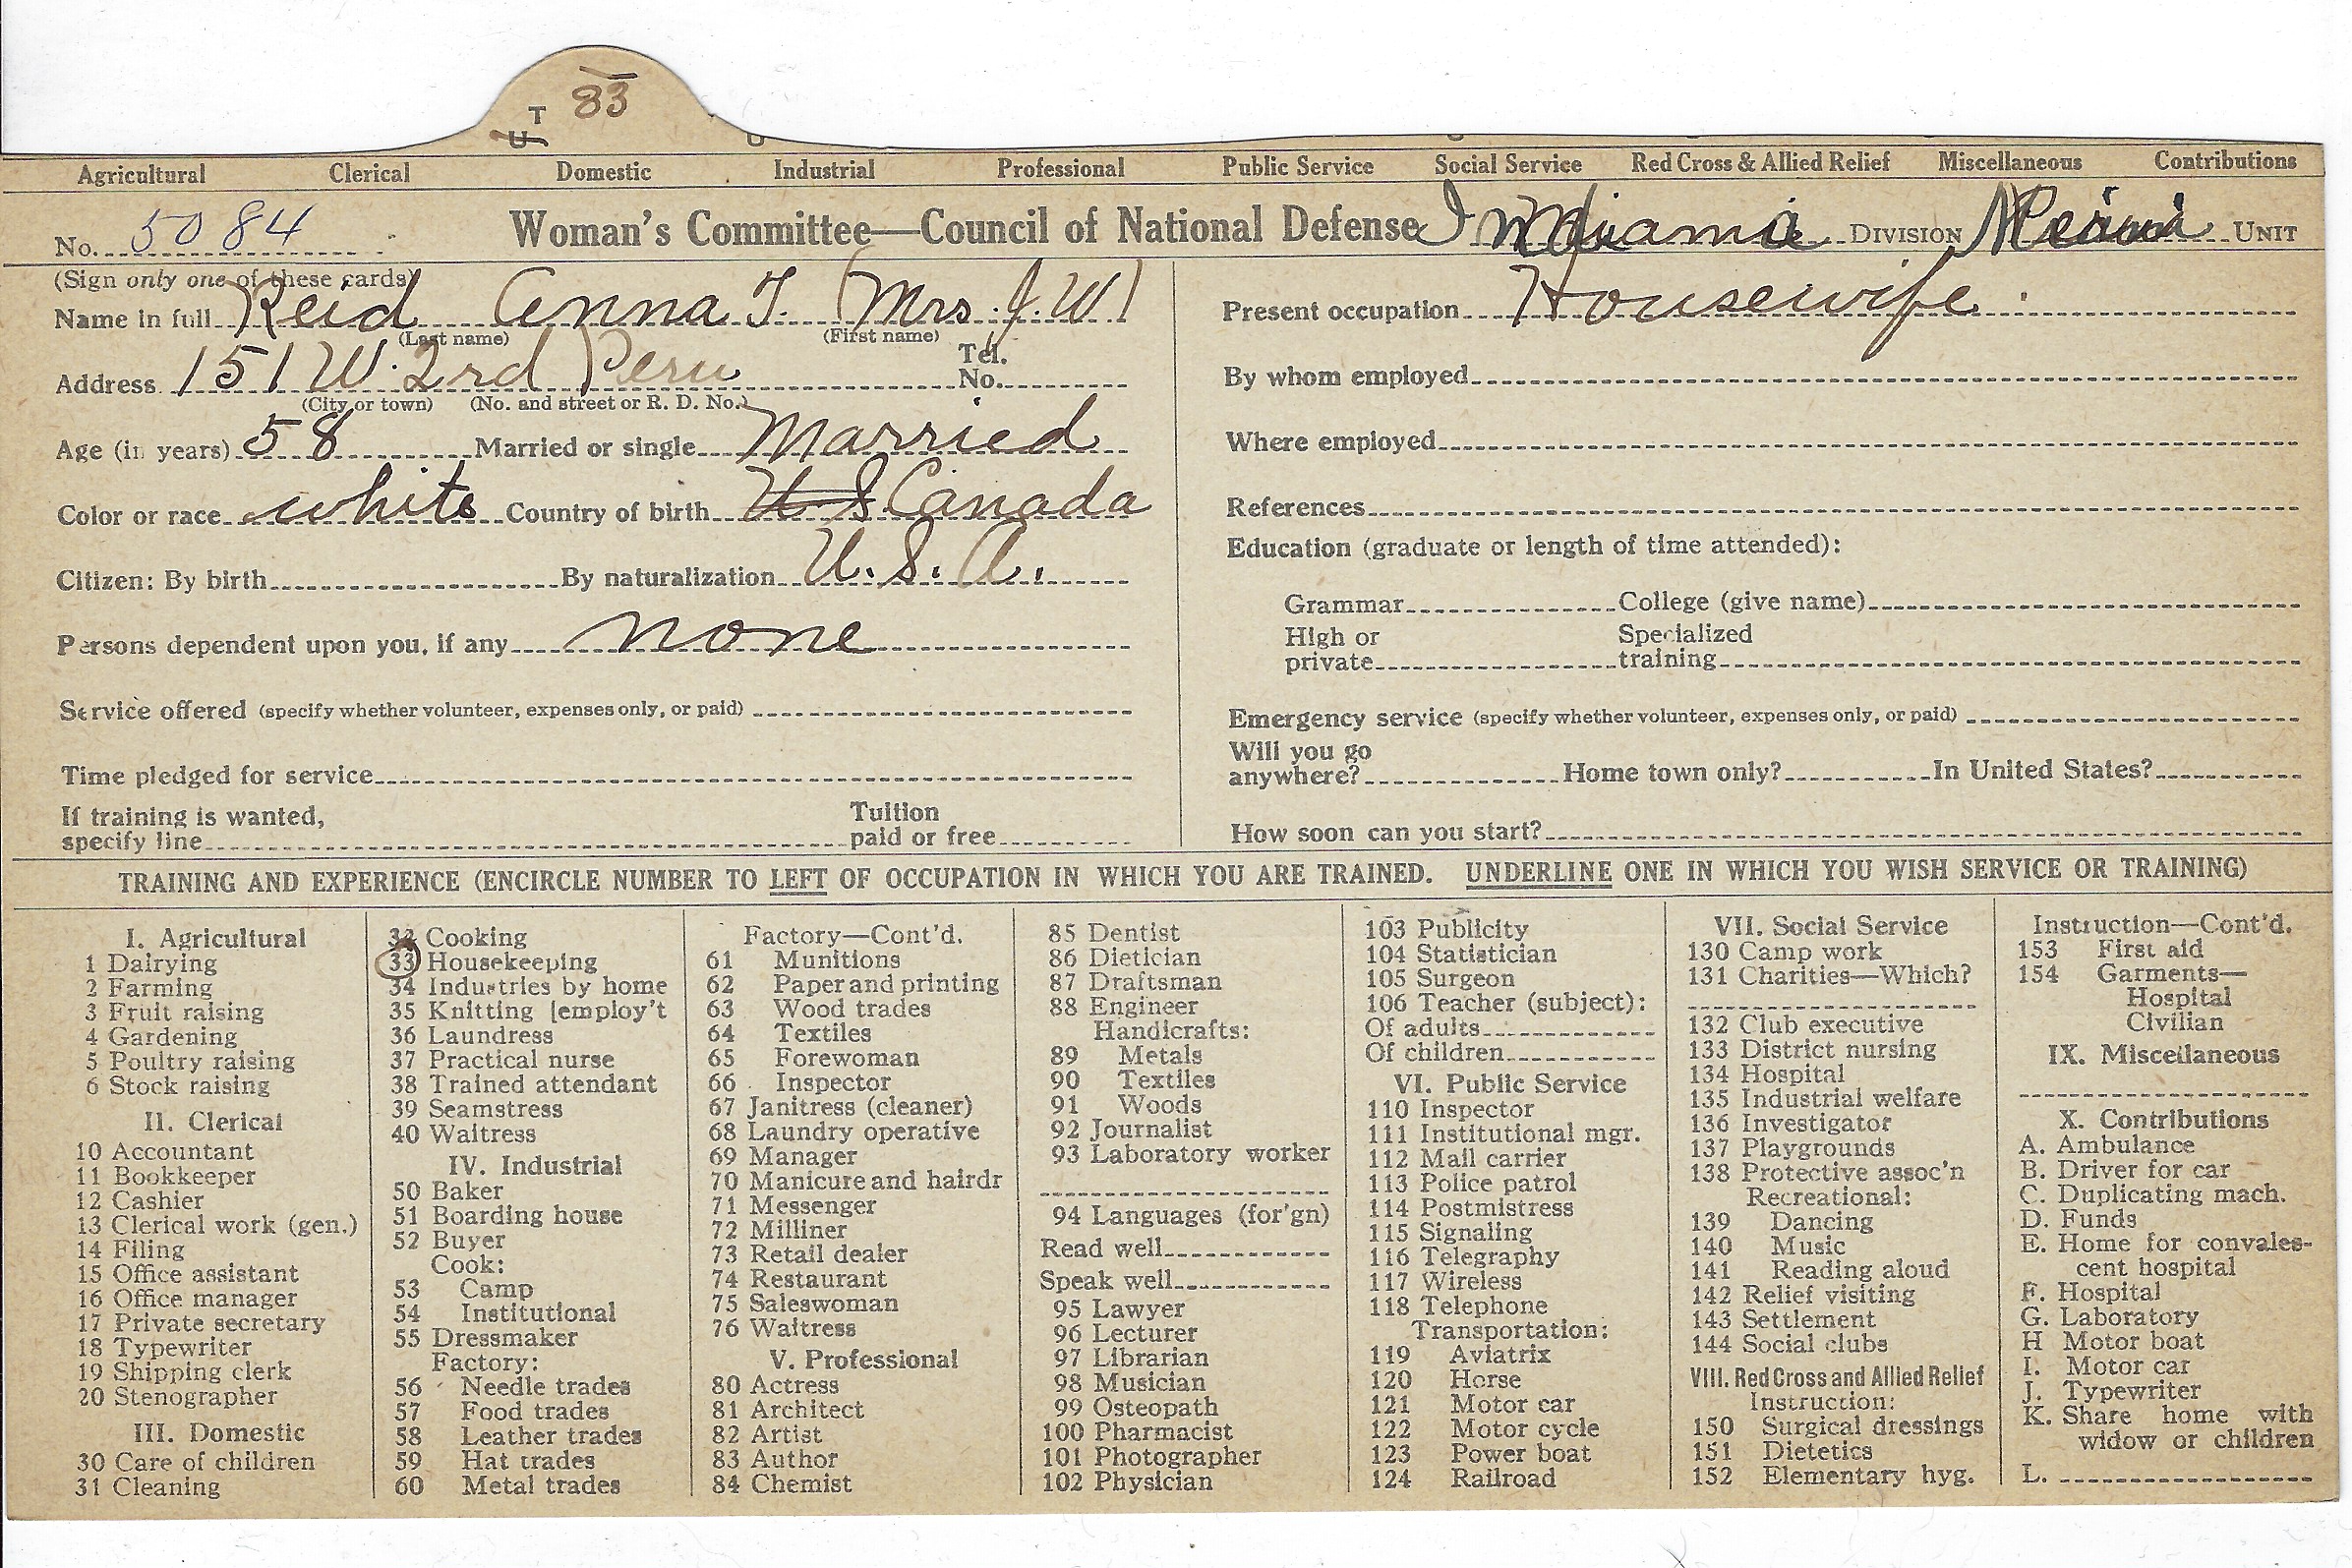 83
T
U
Agricultural Clerical Domestic Industrial Professional Public Service Social Service Red Cross & Allied Relief Miscellaneous Contributions
No. 5084 Woman's Committee—Council of National Defense Indiana DIVISION UNIT
(Sign only one of these cards)
Name in full Reid Anna T. (Mrs. J. W)
(Last name) (First name)
Address 151 W. 2rd Peru Tel. No.
(City or town) (No. and street or R. D. No.)
Age (in years) 58 Married or single Married
Color or race white Country of birth U S Canada
Citizen: By birth By naturalization U. S. A.
Persons dependent upon you, if any none
Service offered (specify whether volunteer, expenses only, or paid)
Time pledged for service
If training is wanted, specify line Tuition paid or free
Present occupation Housewife
By whom employed
Where employed
References
Education (graduate or length of time attended):
Grammar College (give name)
High or private Specialized training
Emergency service (specify whether volunteer, expenses only, or paid)
Will you go anywhere? Home town only? In United States?
How soon can you start?
TRAINING AND EXPERIENCE (ENCIRCLE NUMBER TO LEFT OF OCCUPATION IN WHICH YOU ARE TRAINED. UNDERLINE ONE IN WHICH YOU WISH SERVICE OR TRAINING)
I. Agricultural
1 Dairying
2 Farming
3 Fruit raising
4 Gardening
5 Poultry raising
6 Stock raising
II. Clerical
10 Accountant
11 Bookkeeper
12 Cashier
13 Clerical work (gen.)
14 Filing
15 Office assistant
16 Office manager
17 Private secretary
18 Typewriter
19 Shipping clerk
20 Stenographer
III. Domestic
30 Care of children
31 Cleaning
32 Cooking
33 Housekeeping
34 Industries by home
35 Knitting [employ't
36 Laundress
37 Practical nurse
38 Trained attendant
39 Seamstress
40 Waitress
IV. Industrial
50 Baker
51 Boarding house
52 Buyer
Cook:
53 Camp
54 Institutional
55 Dressmaker
Factory:
56 Needle trades
57 Food trades
58 Leather trades
59 Hat trades
60 Metal trades
Factory—Cont'd.
61 Munitions
62 Paper and printing
63 Wood trades
64 Textiles
65 Forewoman
66 Inspector
67 Janitress (cleaner)
68 Laundry operative
69 Manager
70 Manicure and hairdr
71 Messenger
72 Milliner
73 Retail dealer
74 Restaurant
75 Saleswoman
76 Waitress
V. Professional
80 Actress
81 Architect
82 Artist
83 Author
84 Chemist
85 Dentist
86 Dietician
87 Draftsman
88 Engineer
Handicrafts:
89 Metals
90 Textiles
91 Woods
92 Journalist
93 Laboratory worker
94 Languages (for'gn)
Read well
Speak well
95 Lawyer
96 Lecturer
97 Librarian
98 Musician
99 Osteopath
100 Pharmacist
101 Photographer
102 Physician
103 Publicity
104 Statistician
105 Surgeon
106 Teacher (subject):
Of adults
Of children
VI. Public Service
110 Inspector
111 Institutional mgr.
112 Mail carrier
113 Police patrol
114 Postmistress
115 Signaling
116 Telegraphy
117 Wireless
118 Telephone
Transportation:
119 Aviatrix
120 Horse
121 Motor car
122 Motor cycle
123 Power boat
124 Railroad
VII. Social Service
130 Camp work
131 Charities—Which?
132 Club executive
133 District nursing
134 Hospital
135 Industrial welfare
136 Investigator
137 Playgrounds
138 Protective assoc'n
Recreational:
139 Dancing
140 Music
141 Reading aloud
142 Relief visiting
143 Settlement
144 Social clubs
VIII. Red Cross and Allied Relief
Instruction:
150 Surgical dressings
151 Dietetics
152 Elementary hyg.
Instruction—Cont'd.
153 First aid
154 Garments—
Hospital
Civilian
IX. Miscellaneous
X. Contributions
A. Ambulance
B. Driver for car
C. Duplicating mach.
D. Funds
E. Home for convales-
cent hospital
F. Hospital
G. Laboratory
H Motor boat
I. Motor car
J. Typewriter
K. Share home with
widow or children
L.